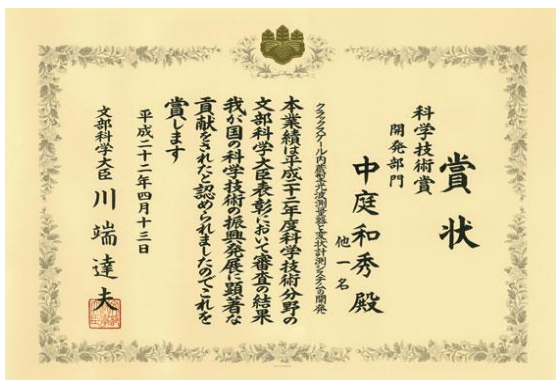 賞状
科学技術賞
開発部門
中庭和秀殿
他一名
クラックスケール内蔵型光波測量器と変状計測システムの開発
本業績は平成二十二年度科学技術分野の
文部科学大臣表彰において審査の結果
我が国の科学技術の振興発展に顕著な
貢献をされたと認められましたのでこれを
賞します
平成二十二年四月十三日
文部科学大臣 川端達夫